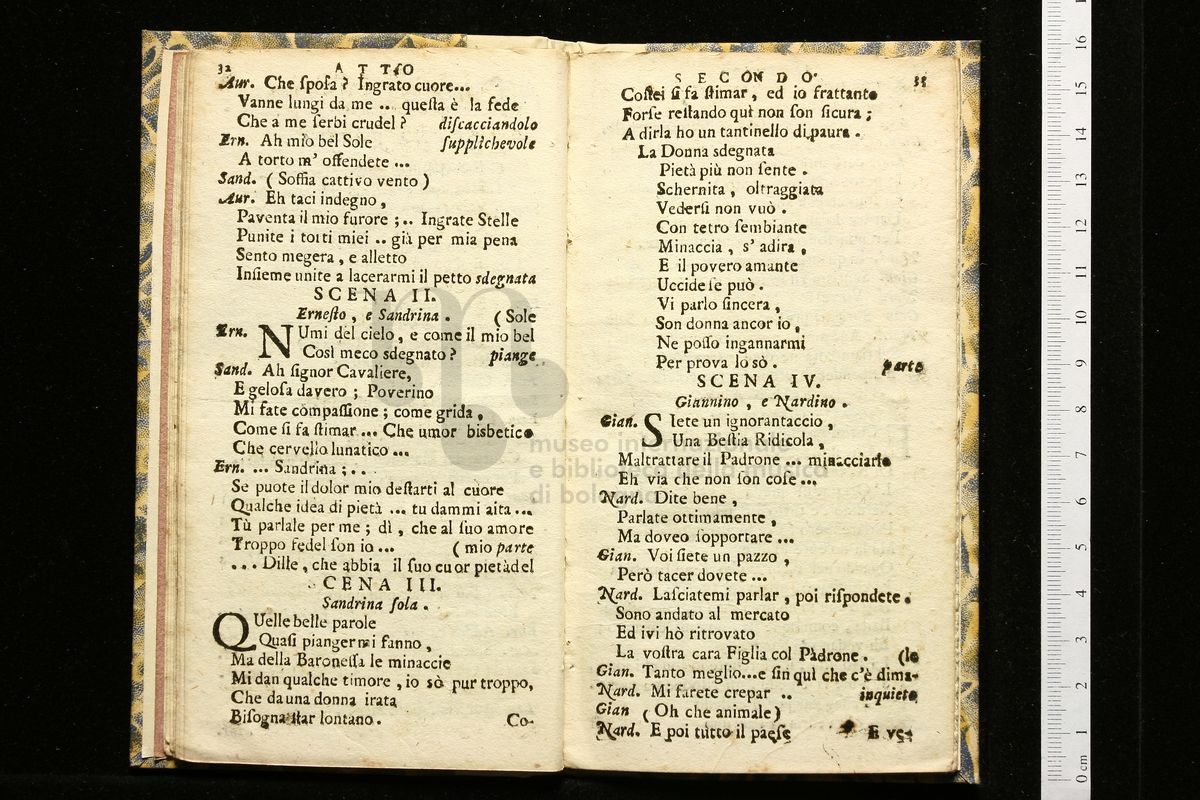 32 A T TſO
Aur. Che ſpoſa? Ingrato cuore...
Vanne lungi da me .. queſta è la fede
Che a me ſerbi crudel? diſcacciandolo
Ern. Ah mio bel Sole ſupplichevole
A torto m' offendete ...
Sand. ( Soffia cattivo vento )
Aur. Eh taci indegno,
Paventa il mio furore ; .. Ingrate Stelle
Punite i torti miei .. già per mia pena
Sento megera, e alletto
Inſieme unite a lacerarmi il petto sdegnata
SCENA II.
Erneſto, e Sandrina. ( Sole
Ern. NUmi del cielo, e come il mio bel
Così meco sdegnato? piange
Sand. Ah ſignor Cavaliere,
E geloſa davero; Poverino
Mi fate compaſſione; come grida,
Come ſi fa ſtimar ... Che umor bisbetico
Che cervello lunatico ...
Ern. ... Sandrina; ...
Se puote il dolor mio deſtarti al cuore
Qualche idea di pietà ... tu dammi aita ...
Tù parlale per me; dì, che al ſuo amore
Troppo fedel ſon io ... ( mio parte
... Dille, che abbia il ſuo cuor pietà del
SCENA III.
Sandrina ſola.
QUelle belle parole
Quaſi piangermi fanno,
Ma della Baroneſſa le minaccie
Mi dan qualche timore, io sò pur troppo,
Che da una donna irata
Biſogna ſtar lontano. Co-
SECONDO. 33
Coſtei ſi fa ſtimar, ed io frattanto
Forſe reſtando quì non ſon ſicura;
A dirla ho un tantinello di paura.
La Donna sdegnata
Pietà più non ſente.
Schernita, oltraggiata
Vederſi non vuò.
Con tetro ſembiante
Minaccia, s' adira,
E il povero amante
Uccide ſe può.
Vi parlo ſincera,
Son donna ancor io,
Ne poſſo ingannarmi
Per prova lo sò. parte
SCENA IV.
Giannino, e Nardino.
Gian. SIete un ignorantaccio,
Una Beſtia Ridicola,
Maltrattare il Padrone ... minacciarlo
Eh via che non ſon coſe ...
Nard. Dite bene,
Parlate ottimamente,
Ma doveo ſopportare ...
Gian. Voi ſiete un pazzo,
Però tacer dovete ...
Nard. Laſciatemi parlar, poi riſpondete.
Sono andato al mercato
Ed ivi hò ritrovato
La voſtra cara Figlia col Padrone. (le
Gian. Tanto meglio...e ſin quì che c'è di ma-
Nard. Mi farete crepar .. inquieto
Gian ( Oh che animale)
Nard. E poi tutto il paeſe
museo internazionale
e biblioteca della musica
di bologna
0 cm 1 2 3 4 5 6 7 8 9 10 11 12 13 14 15 16